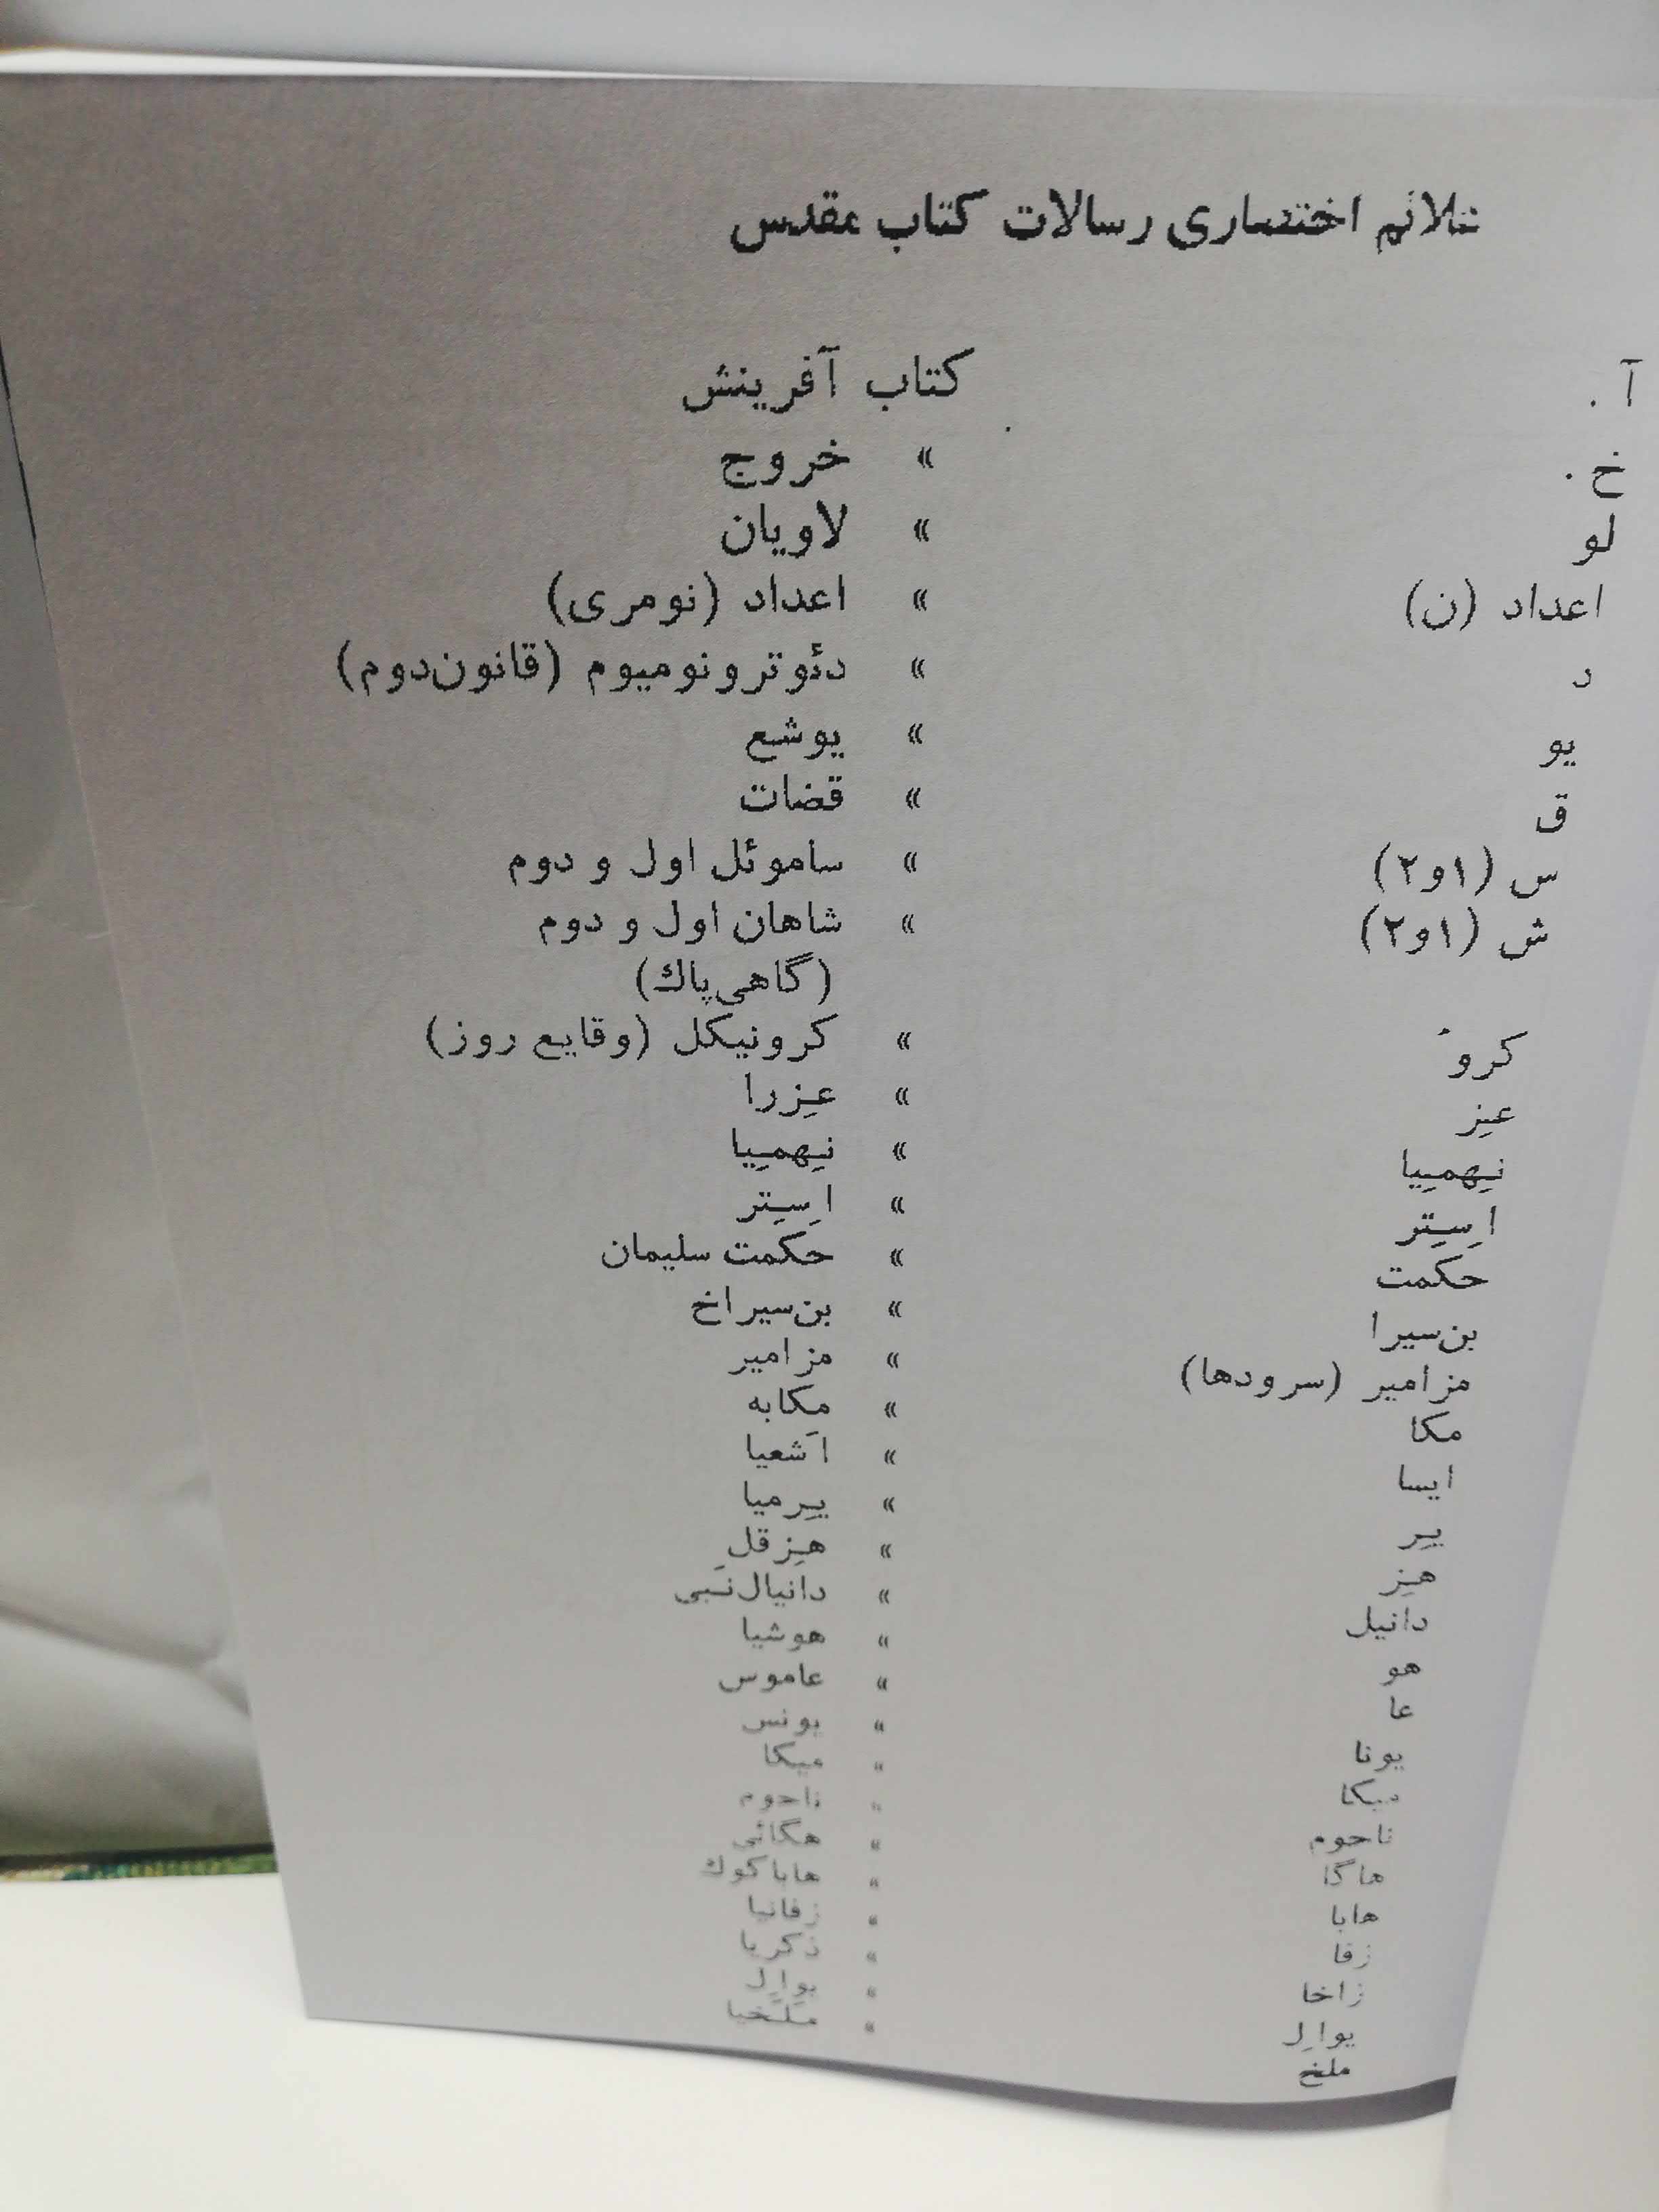 علائم اختصاری رسالات کتاب مقدس
آ. کتاب آفرینش
خ. » خروج
لو » لاویان
اعداد (ن) » اعداد (نومری)
د » دئوترونومیوم (قانون‌دوم)
یو » یوشع
ق » قضات
س (۱و۲) » ساموئل اول و دوم
ش (۱و۲) » شاهان اول و دوم
(گاهی‌پاك)
کرو » کرونیکل (وقایع روز)
عِز » عِزرا
نِهمِیا » نِهمِیا
اِستِر » اِستِر
حکمت » حکمت سلیمان
بن‌سیرا » بن‌سیراخ
مزامیر (سرودها) » مزامیر
مکا » مِکابه
ایسا » اَشعیا
یِر » یِرمیا
هِز » هِزقِل
دانیل » دانیال‌نَبی
هو » هوشیا
عا » عاموس
یونا » یونس
میکا » میکا
ناحوم » ناحوم
هاگا » هگائی
هابا » هاباکوك
زفا » زفانیا
زاخا » ذکریا
یواِل » یواِل
ملخ » مَلَخیا